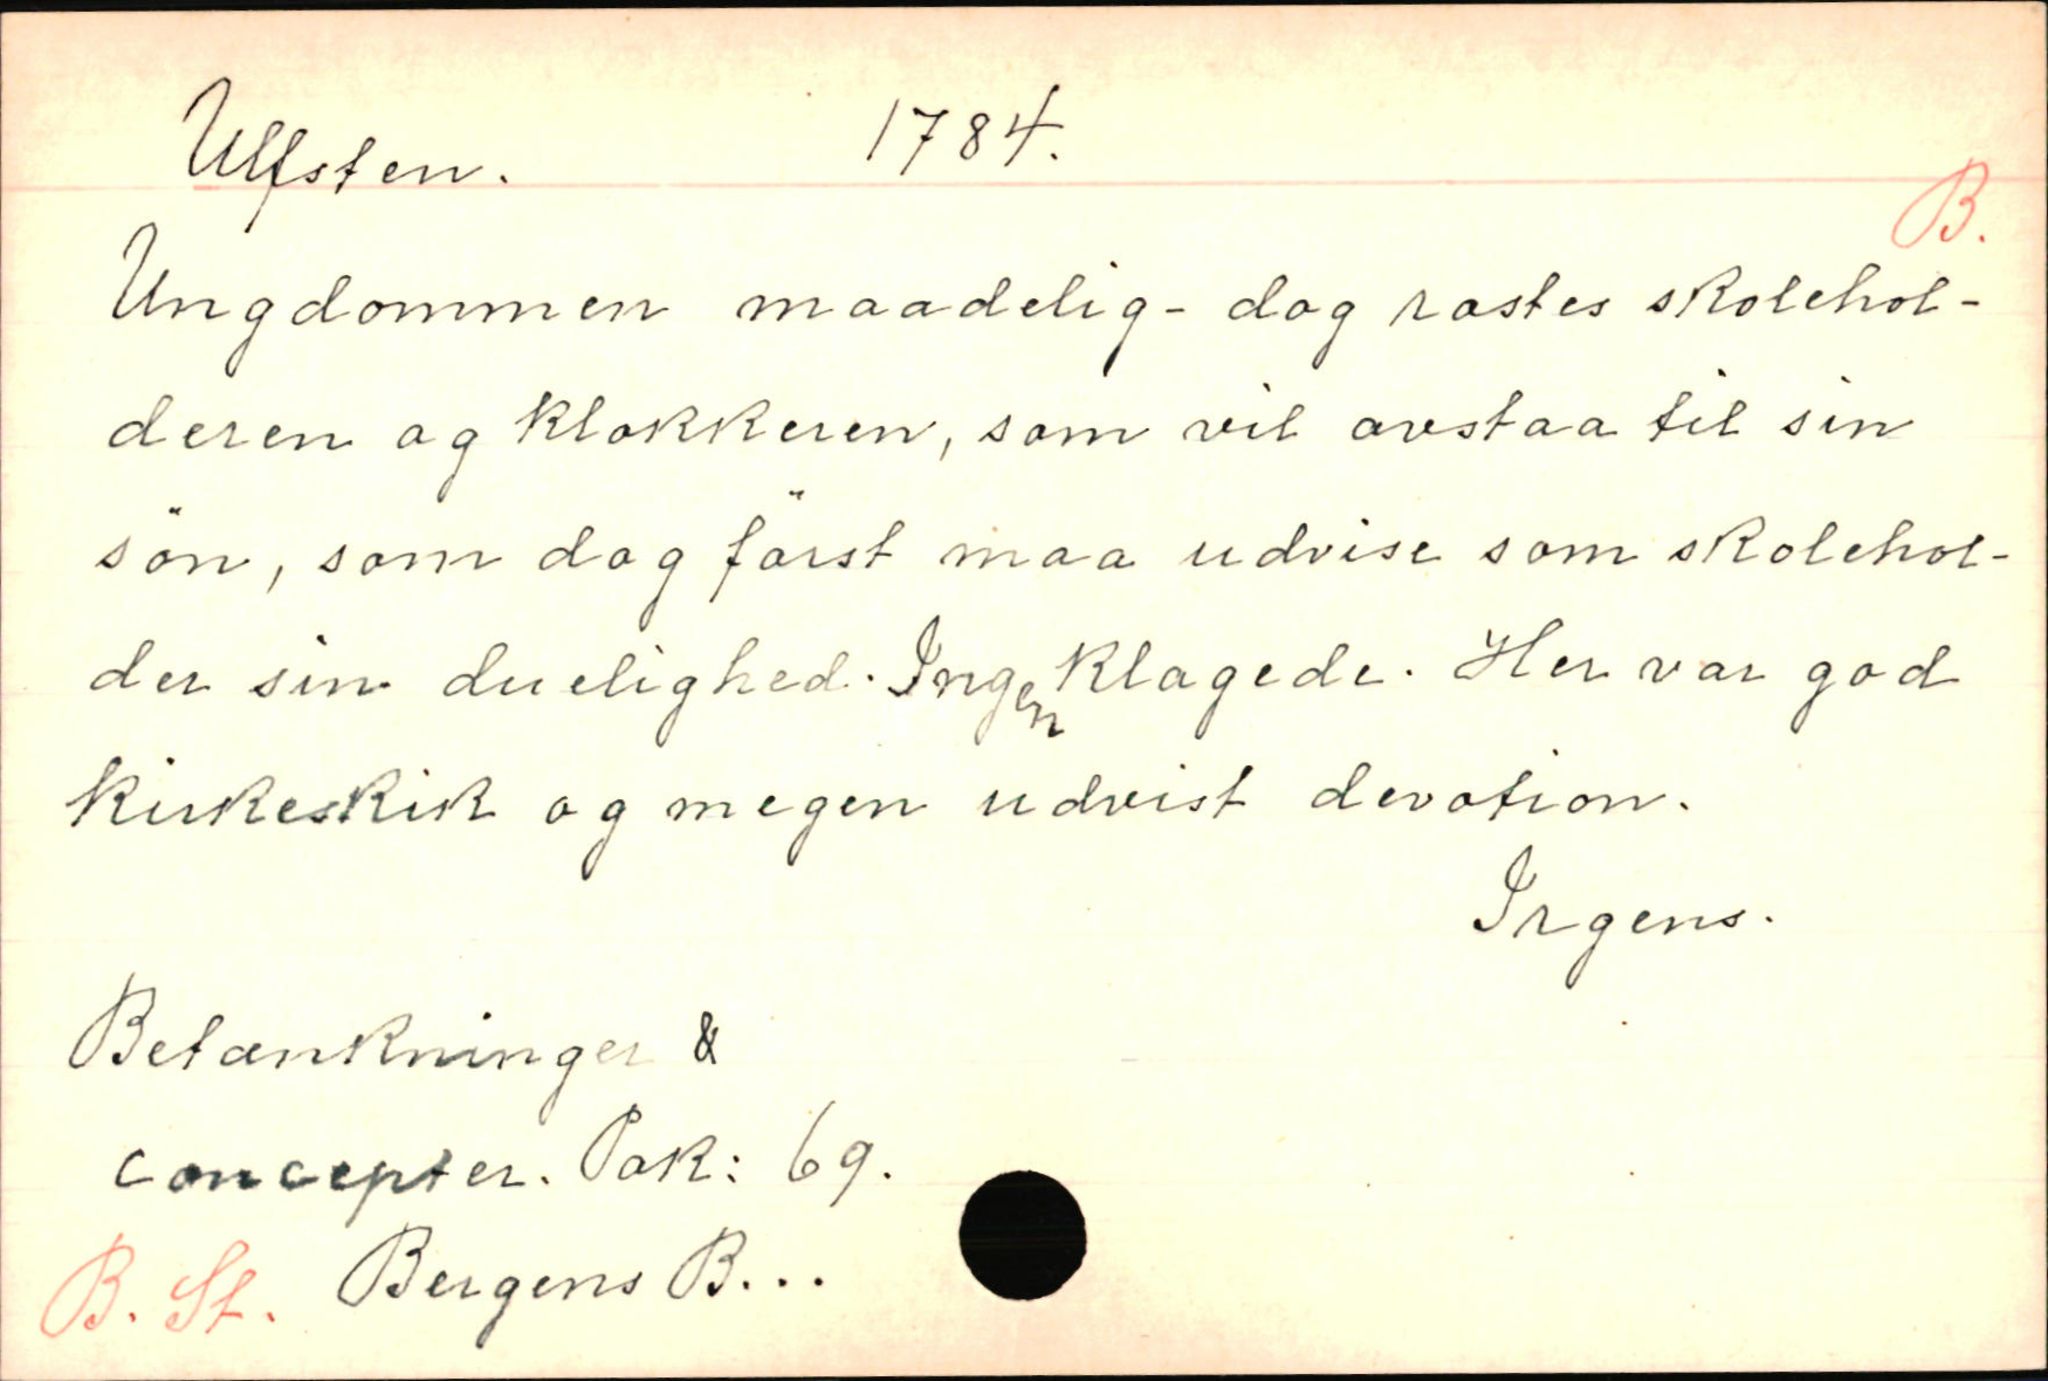 Ulfsten. 1784.
B.
Ungdommen maadelig - dog rostes skolehol-
deren og klokkeren, som vil avstaa til sin
sön, som dog först maa udvise som skolehol-
der sin duelighed. Ingen klagede. Her var god
kirkeskik og megen udvist devotion.
Irgens.
Betænkninger &
concepter. Pak: 69.
B. St. Bergens B...